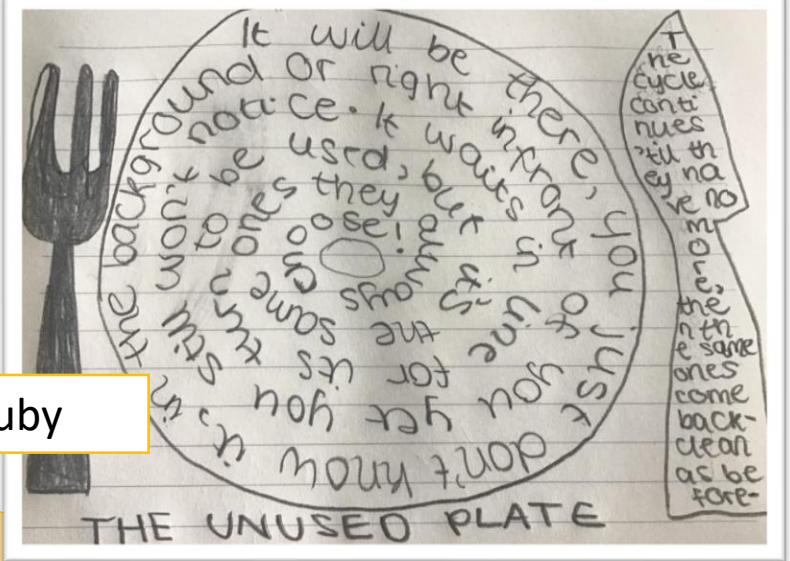 It will be there, you just don't know it, in the background or right infront of you yet you still won't notice. It waits in line for its turn to be used, but it's always the same ones they choose!
T
he
cycle
conti
nues
'til th
ey ha
ve no
m
o
r
e,
the
n th
e same
ones
come
back-
clean
as be
fore-
uby
THE UNUSED PLATE